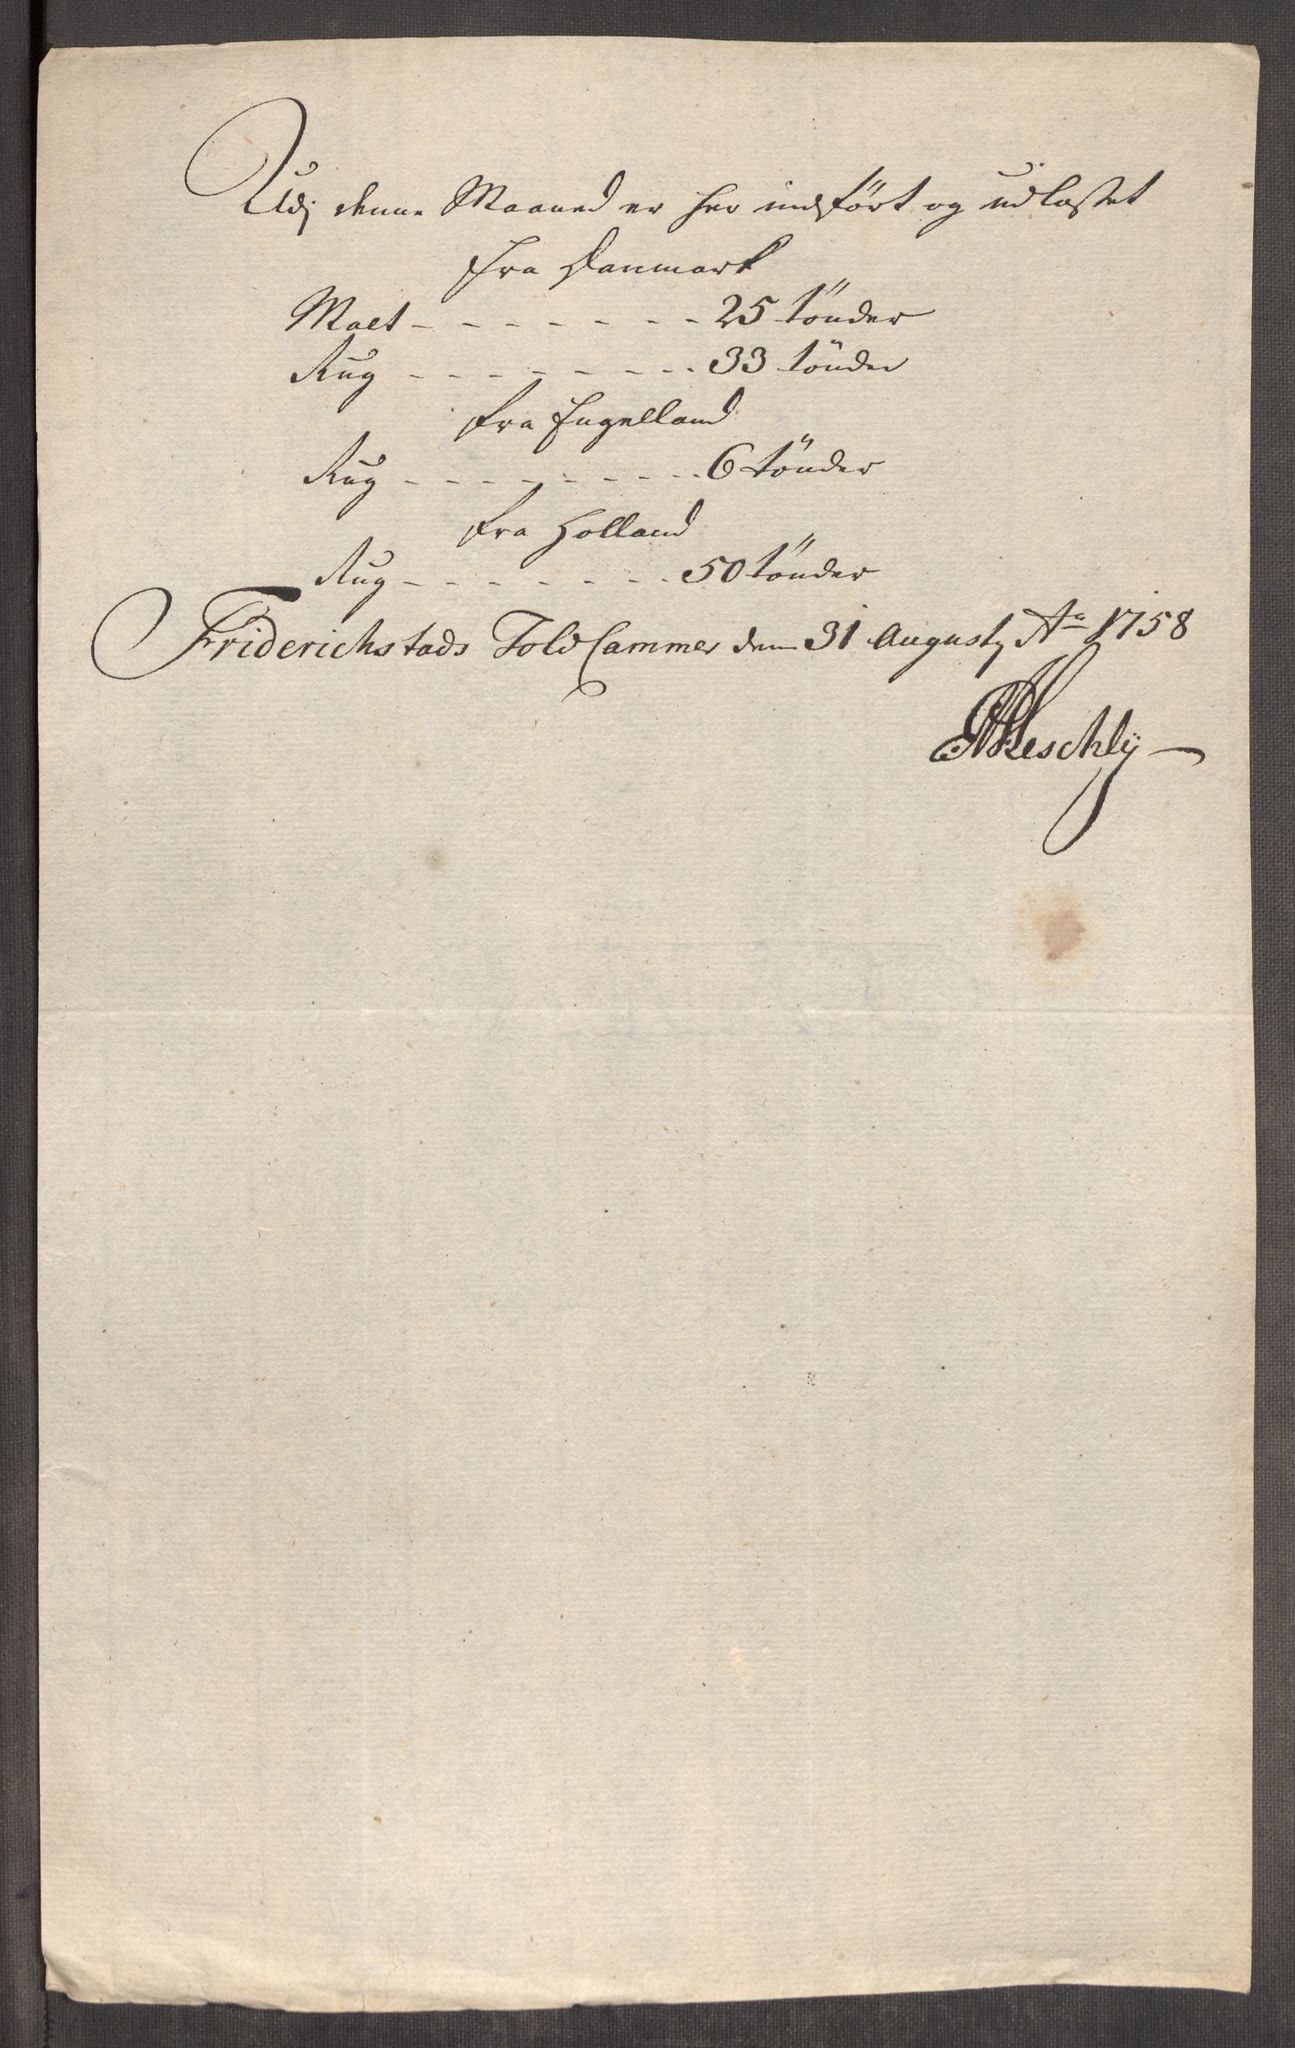 Udj denne Maaned er her indført og udlosset
Fra Danmark
Malt - - - - - - - - 25 tönder
Rug - - - - - - - - 33 tönder
fra Engelland
Rug - - - - - - - - 6 tönder
fra Holland
Rug - - - - - - - 50 tönder
Friderichstads Told Cammer dem 31 Augustj Ao 1758